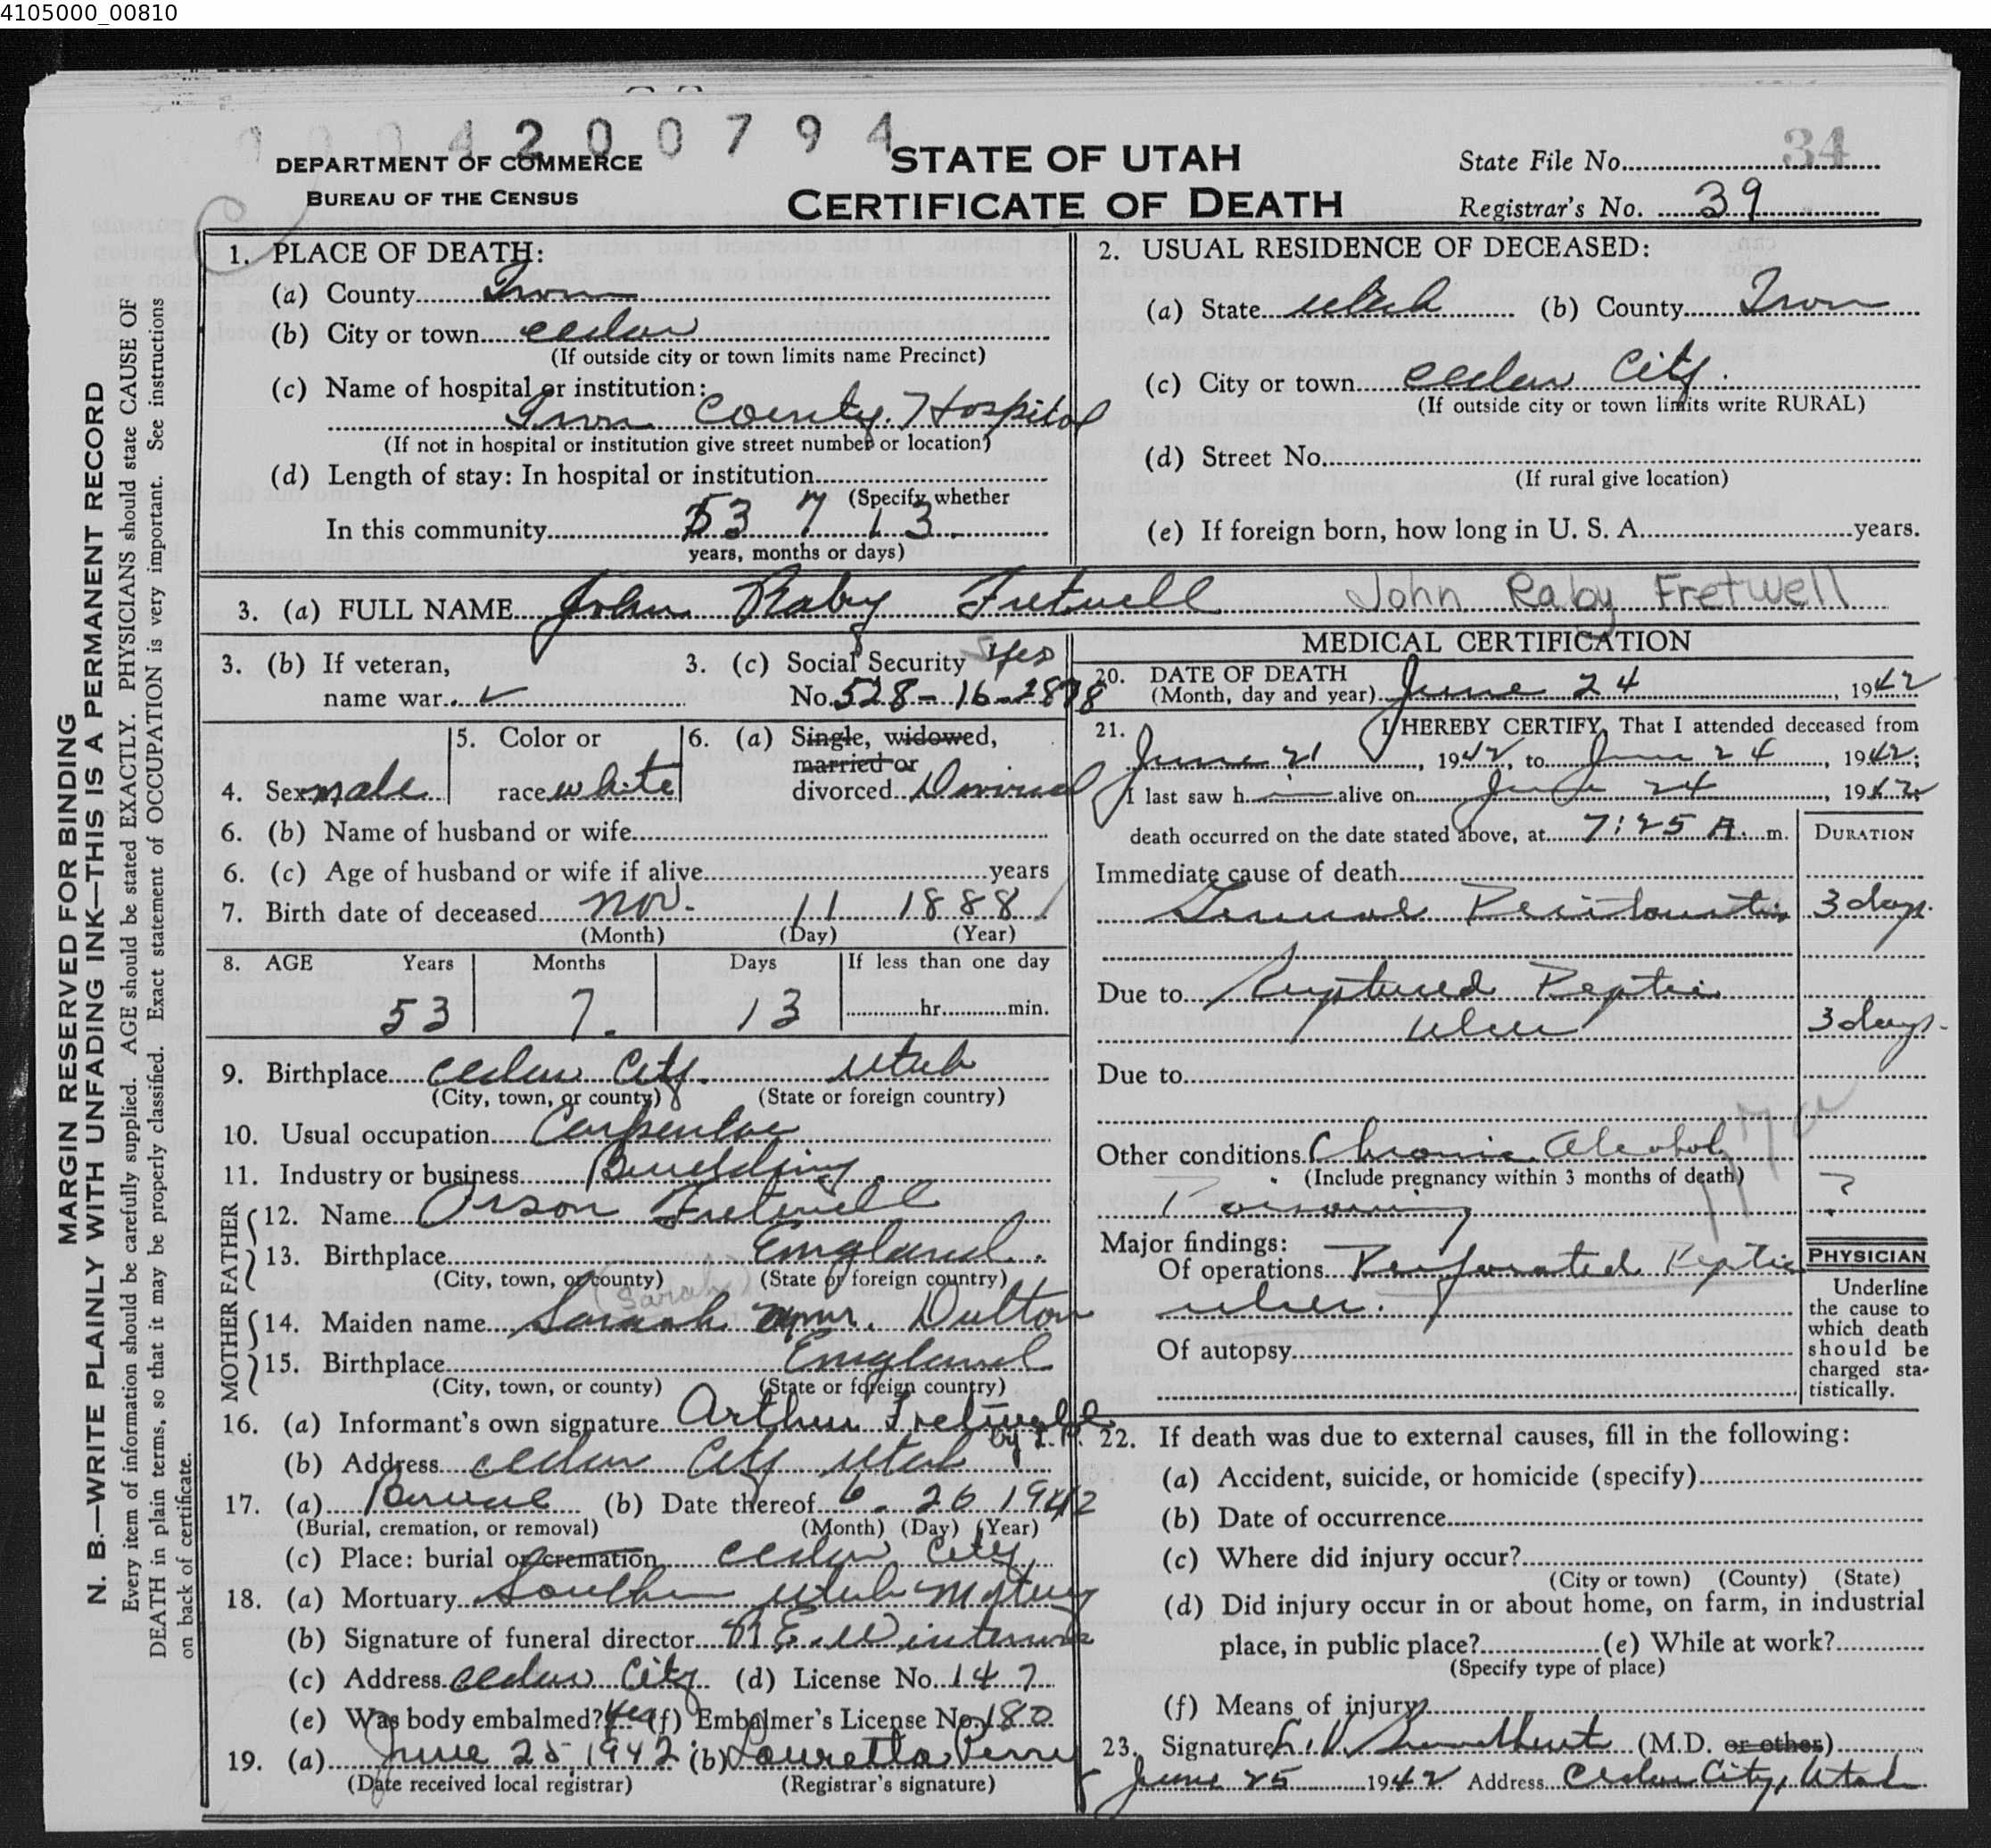 4105000_00810
0004200794
DEPARTMENT OF COMMERCE
BUREAU OF THE CENSUS
STATE OF UTAH
CERTIFICATE OF DEATH
State File No. 34
Registrar's No. 39
MARGIN RESERVED FOR BINDING
N. B.—WRITE PLAINLY WITH UNFADING INK—THIS IS A PERMANENT RECORD
Every item of information should be carefully supplied. AGE should be stated EXACTLY. PHYSICIANS should state CAUSE OF
DEATH in plain terms, so that it may be properly classified. Exact statement of OCCUPATION is very important. See instructions
on back of certificate.
1. PLACE OF DEATH:
(a) County Iron
(b) City or town cedar
(If outside city or town limits name Precinct)
(c) Name of hospital or institution:
Iron County Hospital
(If not in hospital or institution give street number or location)
(d) Length of stay: In hospital or institution
(Specify whether
In this community 53 7 13
years, months or days)
2. USUAL RESIDENCE OF DECEASED:
(a) State utah (b) County Iron
(c) City or town cedar City
(If outside city or town limits write RURAL)
(d) Street No.
(If rural give location)
(e) If foreign born, how long in U. S. A. years.
3. (a) FULL NAME John Raby Fretwell John Raby Fretwell
3. (b) If veteran,
name war
3. (c) Social Security yes
No. 528-16-2878
4. Sex male
5. Color or
race white
6. (a) Single, widowed,
married or
divorced Divorced
6. (b) Name of husband or wife
6. (c) Age of husband or wife if alive years
7. Birth date of deceased Nov. 11 1888
(Month) (Day) (Year)
8. AGE Years Months Days If less than one day
53 7 13 hr. min.
9. Birthplace cedar City utah
(City, town, or county) (State or foreign country)
10. Usual occupation Carpenter
11. Industry or business Building
FATHER
12. Name Orson Fretwell
13. Birthplace England
(City, town, or county) (State or foreign country)
(Sarah)
MOTHER
14. Maiden name Sarah Ann Dutton
15. Birthplace England
(City, town, or county) (State or foreign country)
16. (a) Informant's own signature Arthur Fretwell
by L.P.
(b) Address cedar City utah
17. (a) Burial (b) Date thereof 6 26 1942
(Burial, cremation, or removal) (Month) (Day) (Year)
(c) Place: burial or cremation cedar City
18. (a) Mortuary Southern utah Mortuary
(b) Signature of funeral director
(c) Address cedar City (d) License No. 147
(e) Was body embalmed? Yes (f) Embalmer's License No. 180
19. (a) June 25, 1942 (b) Louretta Perry
(Date received local registrar) (Registrar's signature)
MEDICAL CERTIFICATION
20. DATE OF DEATH
(Month, day and year) June 24, 1942
21. I HEREBY CERTIFY, That I attended deceased from
June 21, 1942, to June 24, 1942;
I last saw h im alive on June 24, 1942;
death occurred on the date stated above, at 7:25 A. m.
DURATION
Immediate cause of death
General Peritonitis 3 days.
Due to Ruptured Peptic
ulcer 3 days.
Due to
Other conditions Chronic Alcohol
(Include pregnancy within 3 months of death)
Poisoning ?
Major findings:
Of operations Perforated Peptic
ulcer.
Of autopsy
PHYSICIAN
Underline
the cause to
which death
should be
charged sta-
tistically.
22. If death was due to external causes, fill in the following:
(a) Accident, suicide, or homicide (specify)
(b) Date of occurrence
(c) Where did injury occur?
(City or town) (County) (State)
(d) Did injury occur in or about home, on farm, in industrial
place, in public place? (e) While at work?
(Specify type of place)
(f) Means of injury
23. Signature (M.D. or other)
June 25 1942 Address Cedar City, Utah